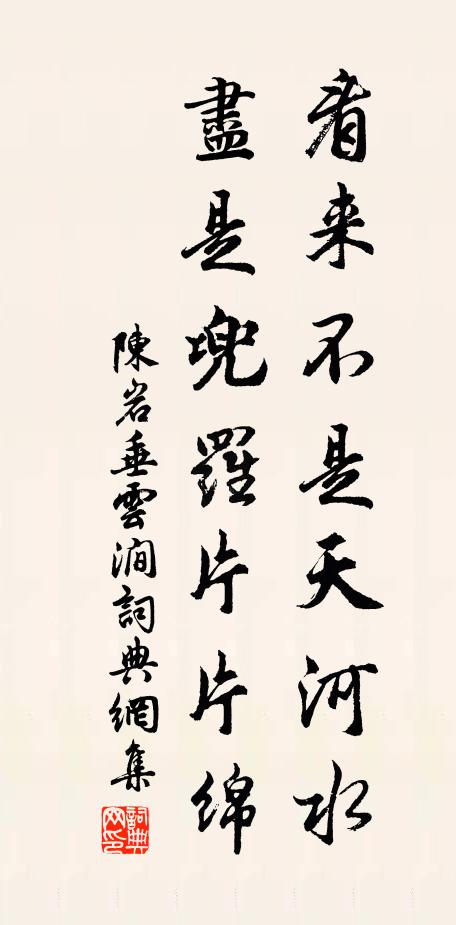 看来不是天河水
盡是兜羅片片綿
陳岩垂雲澗詞典網集
詞典网印